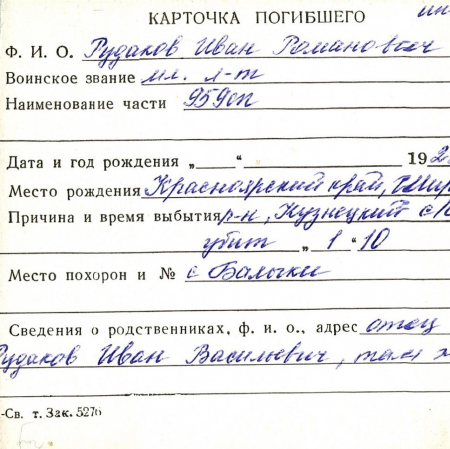 КАРТОЧКА ПОГИБШЕГО
Ф. И. О. Рудаков Иван Романович
Воинское звание мл. л-т
Наименование части 959сп
Дата и год рождения „ “ 192
Место рождения Красноярский край, Шир
Причина и время выбытия р-н, Кузнецкий с/с
убит „ 1 “ 10
Место похорон и № с Балыки
Сведения о родственниках, ф. и. о., адрес отец
Рудаков Иван Васильевич, там ж
-Св. т. Зак. 5276